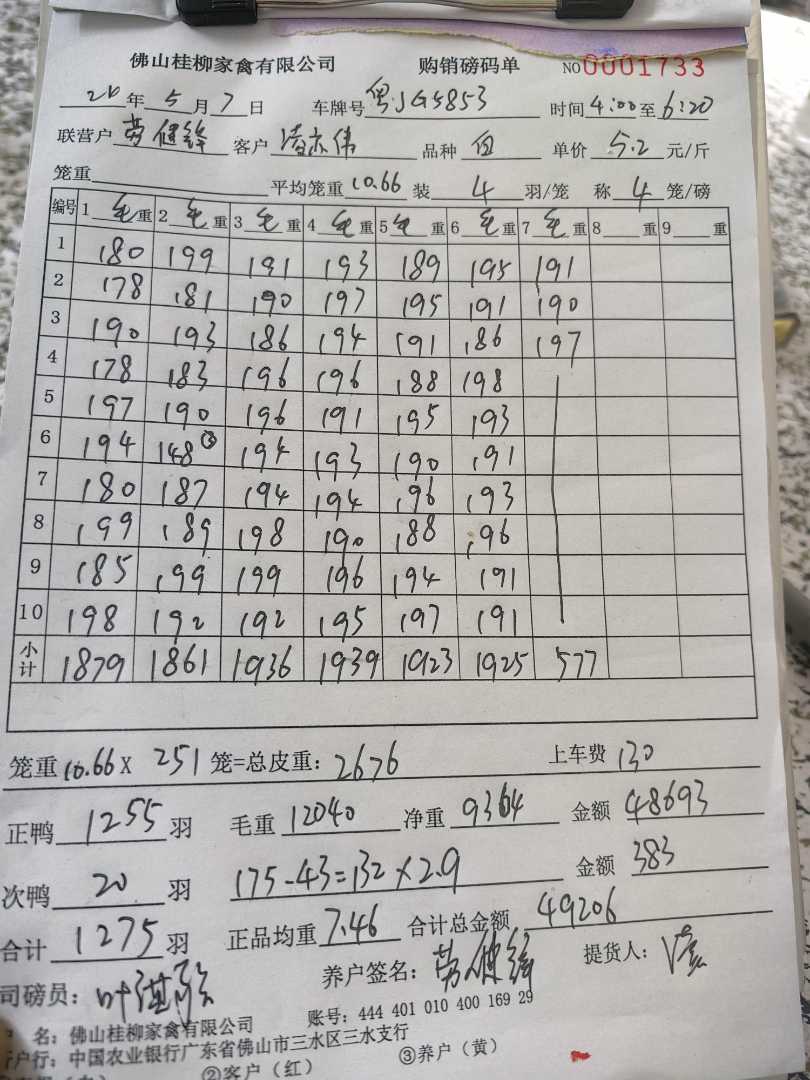 佛山桂柳家禽有限公司 购销磅码单 NO0001733
20年5月7日 车牌号 粤JG5853 时间4:00至6:20
联营户 劳健锋 客户 品种 白 单价 5.2 元/斤
笼重 平均笼重10.66 装 4 羽/笼 称 4 笼/磅
编号 1毛重 2毛重 3毛重 4毛重 5毛重 6毛重 7毛重 8重 9重
1 180 199 191 193 189 195 191
2 178 181 190 197 195 191 190
3 190 193 186 194 191 186 197
4 178 183 196 196 188 198
5 197 190 196 191 195 193
6 194 148③ 194 193 190 191
7 180 187 194 194 196 193
8 199 189 198 190 188 196
9 185 199 199 196 194 191
10 198 192 192 195 197 191
小计 1879 1861 1936 1939 1923 1925 577
笼重10.66X 251 笼=总皮重：2676 上车费 130
正鸭 1255 羽 毛重 12040 净重 9364 金额 48693
次鸭 20 羽 175-43=132×2.9 金额 383
合计 1275 羽 正品均重 7.46 合计总金额 49206
司磅员： 养户签名：劳健锋 提货人：
名：佛山桂柳家禽有限公司 账号：444 401 010 400 169 29
户行：中国农业银行广东省佛山市三水区三水支行
②客户（红） ③养户（黄）